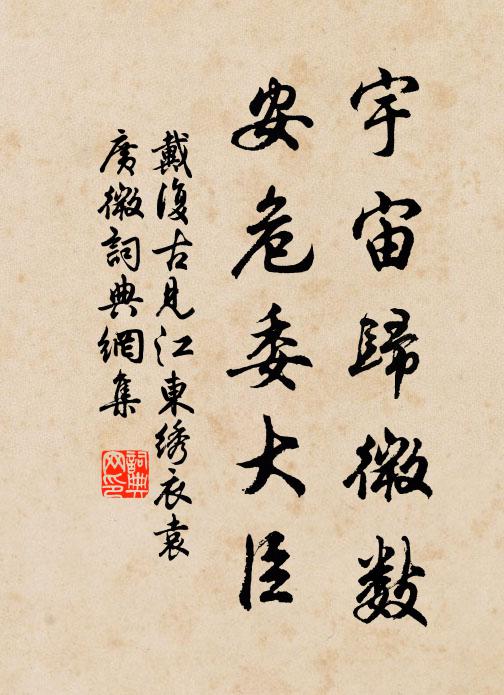 宇宙歸微數
安危委大臣
戴復古見江東绣衣袁
廣微詞典網集
詞典网印